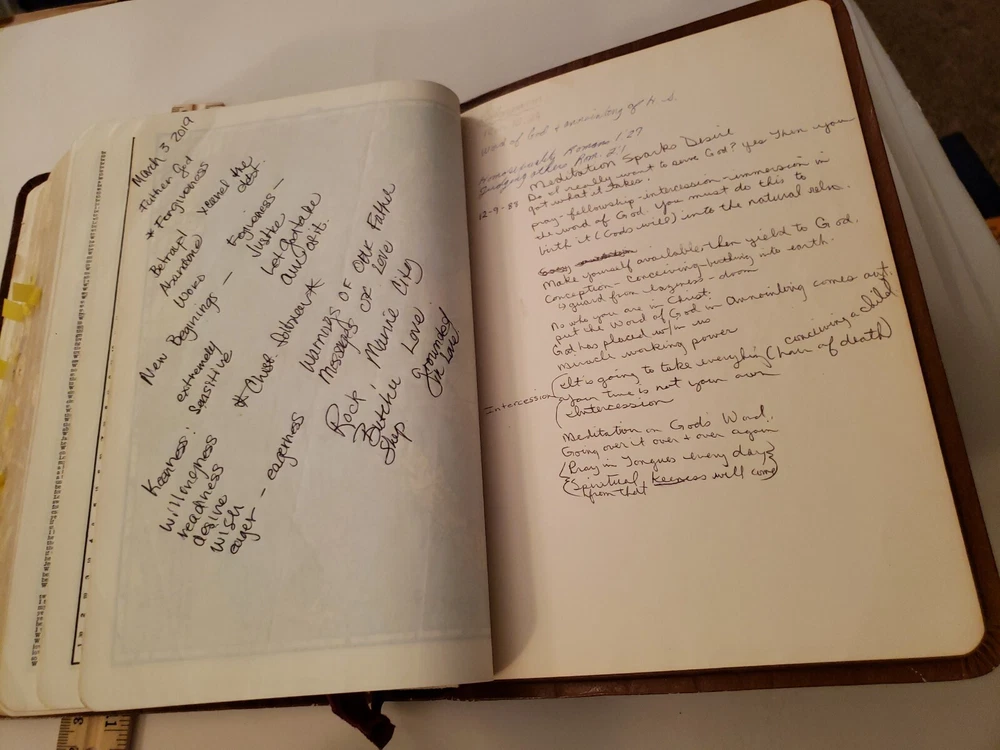 March 3 2019
Father God
* Forgiveness
Xcancel the debt.
Betrayl
Abandoned
Ward
Forgiveness –
Justice
Let God take
care of it.
New Beginings –
extremely
sensitive
* Christ followers *
Warnings OF OUR Father
Messengers OF Love
Keeness:
willongness
readiness
desire
wish
eager – eagerness
Rock Munie City
Butcher Love
Shop Grounded
in Love
Word of God + annointing of H.S.
Homosexually Romans 1:27
Judging others Rom. 2:1
Meditation Sparks Desire
12-9-85 Do I really want to serve God? yes Then you
got what it takes.
pray - fellowship - intercession - immersion in
the word of God. You must do this to
birth it (Gods will) into the natural relm.
Make yourself available then yield to God.
Conception - Conceiving - birthing into earth.
guard from lazyness - doom
No who you are in Christ.
put the Word of God in Annointing comes out.
God has placed w/in us
miracle working power
It is going to take everything (conceiving a child
(hour of death)
Intercession again Time is not your own
Intercession
Meditation on God's Word.
Going over it over + over again
Pray in Tongues every day
Spiritual Keeness will come
from that